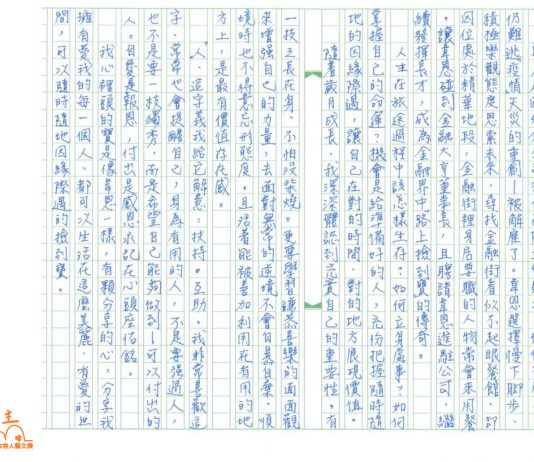 仍難逃疫情天災的重創—被解雇了。韋恩選擇慢下腳步、
積極樂觀態度思索未來，尋找金融街有似不起眼餐館，卻
因位處於精華地段，金融街裡身居要職的人物常會來用餐
，讓韋恩碰到金融大亨董事長，且聘請韋恩進融公司、繼
續發揮長才，成為金融界中路上撿到寶的傳奇。
人生在旅途過程中該怎樣生存？如何立身處事？如何
掌握自己的命運？機會是給準備好的人，充份把握隨時隨
地的因緣際遇，讓自己在對的時間、對的地方展現價值。
隨著歲月成長，我深深體認到充實自己的重要性，有
一技之長在身、不怕沒柴燒。更要學習謙恭喜樂的面面觀
來增強自己的力量，去面對無常的逆境不會自暴自棄，順
境時也不得意忘形態度。且活著能被善加利用在有用的地
方上，是最有價值存在感。
「人」這字義我給它解意：扶持。互助。我非常喜歡這
字、常常也會提醒自己，身為有用的人，不是要強過人，
也不是要一枝獨秀。而是希望自己能夠做到—可以付出的
人。自愛是報恩，付出是感恩永記在心頭座佑銘。
我心裡頭的寶是像韋恩一樣，有顆分享的心，分享我
擁有愛我的每一個人、都可以生活在這麼美麗、有愛的世
間，可以隨時隨地因緣際遇的撿到寶。